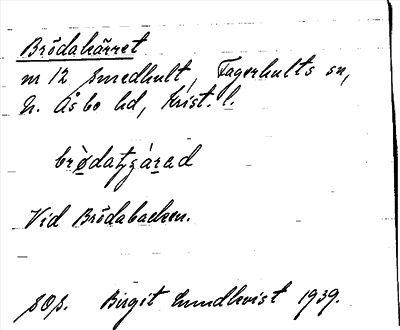 Brödakärret
nr 12 Smedhult, Fagerhults sn,
N. Åsbo hd, Krist. l.
Vid Brödabacken.
Birgit Lundkvist 1939.